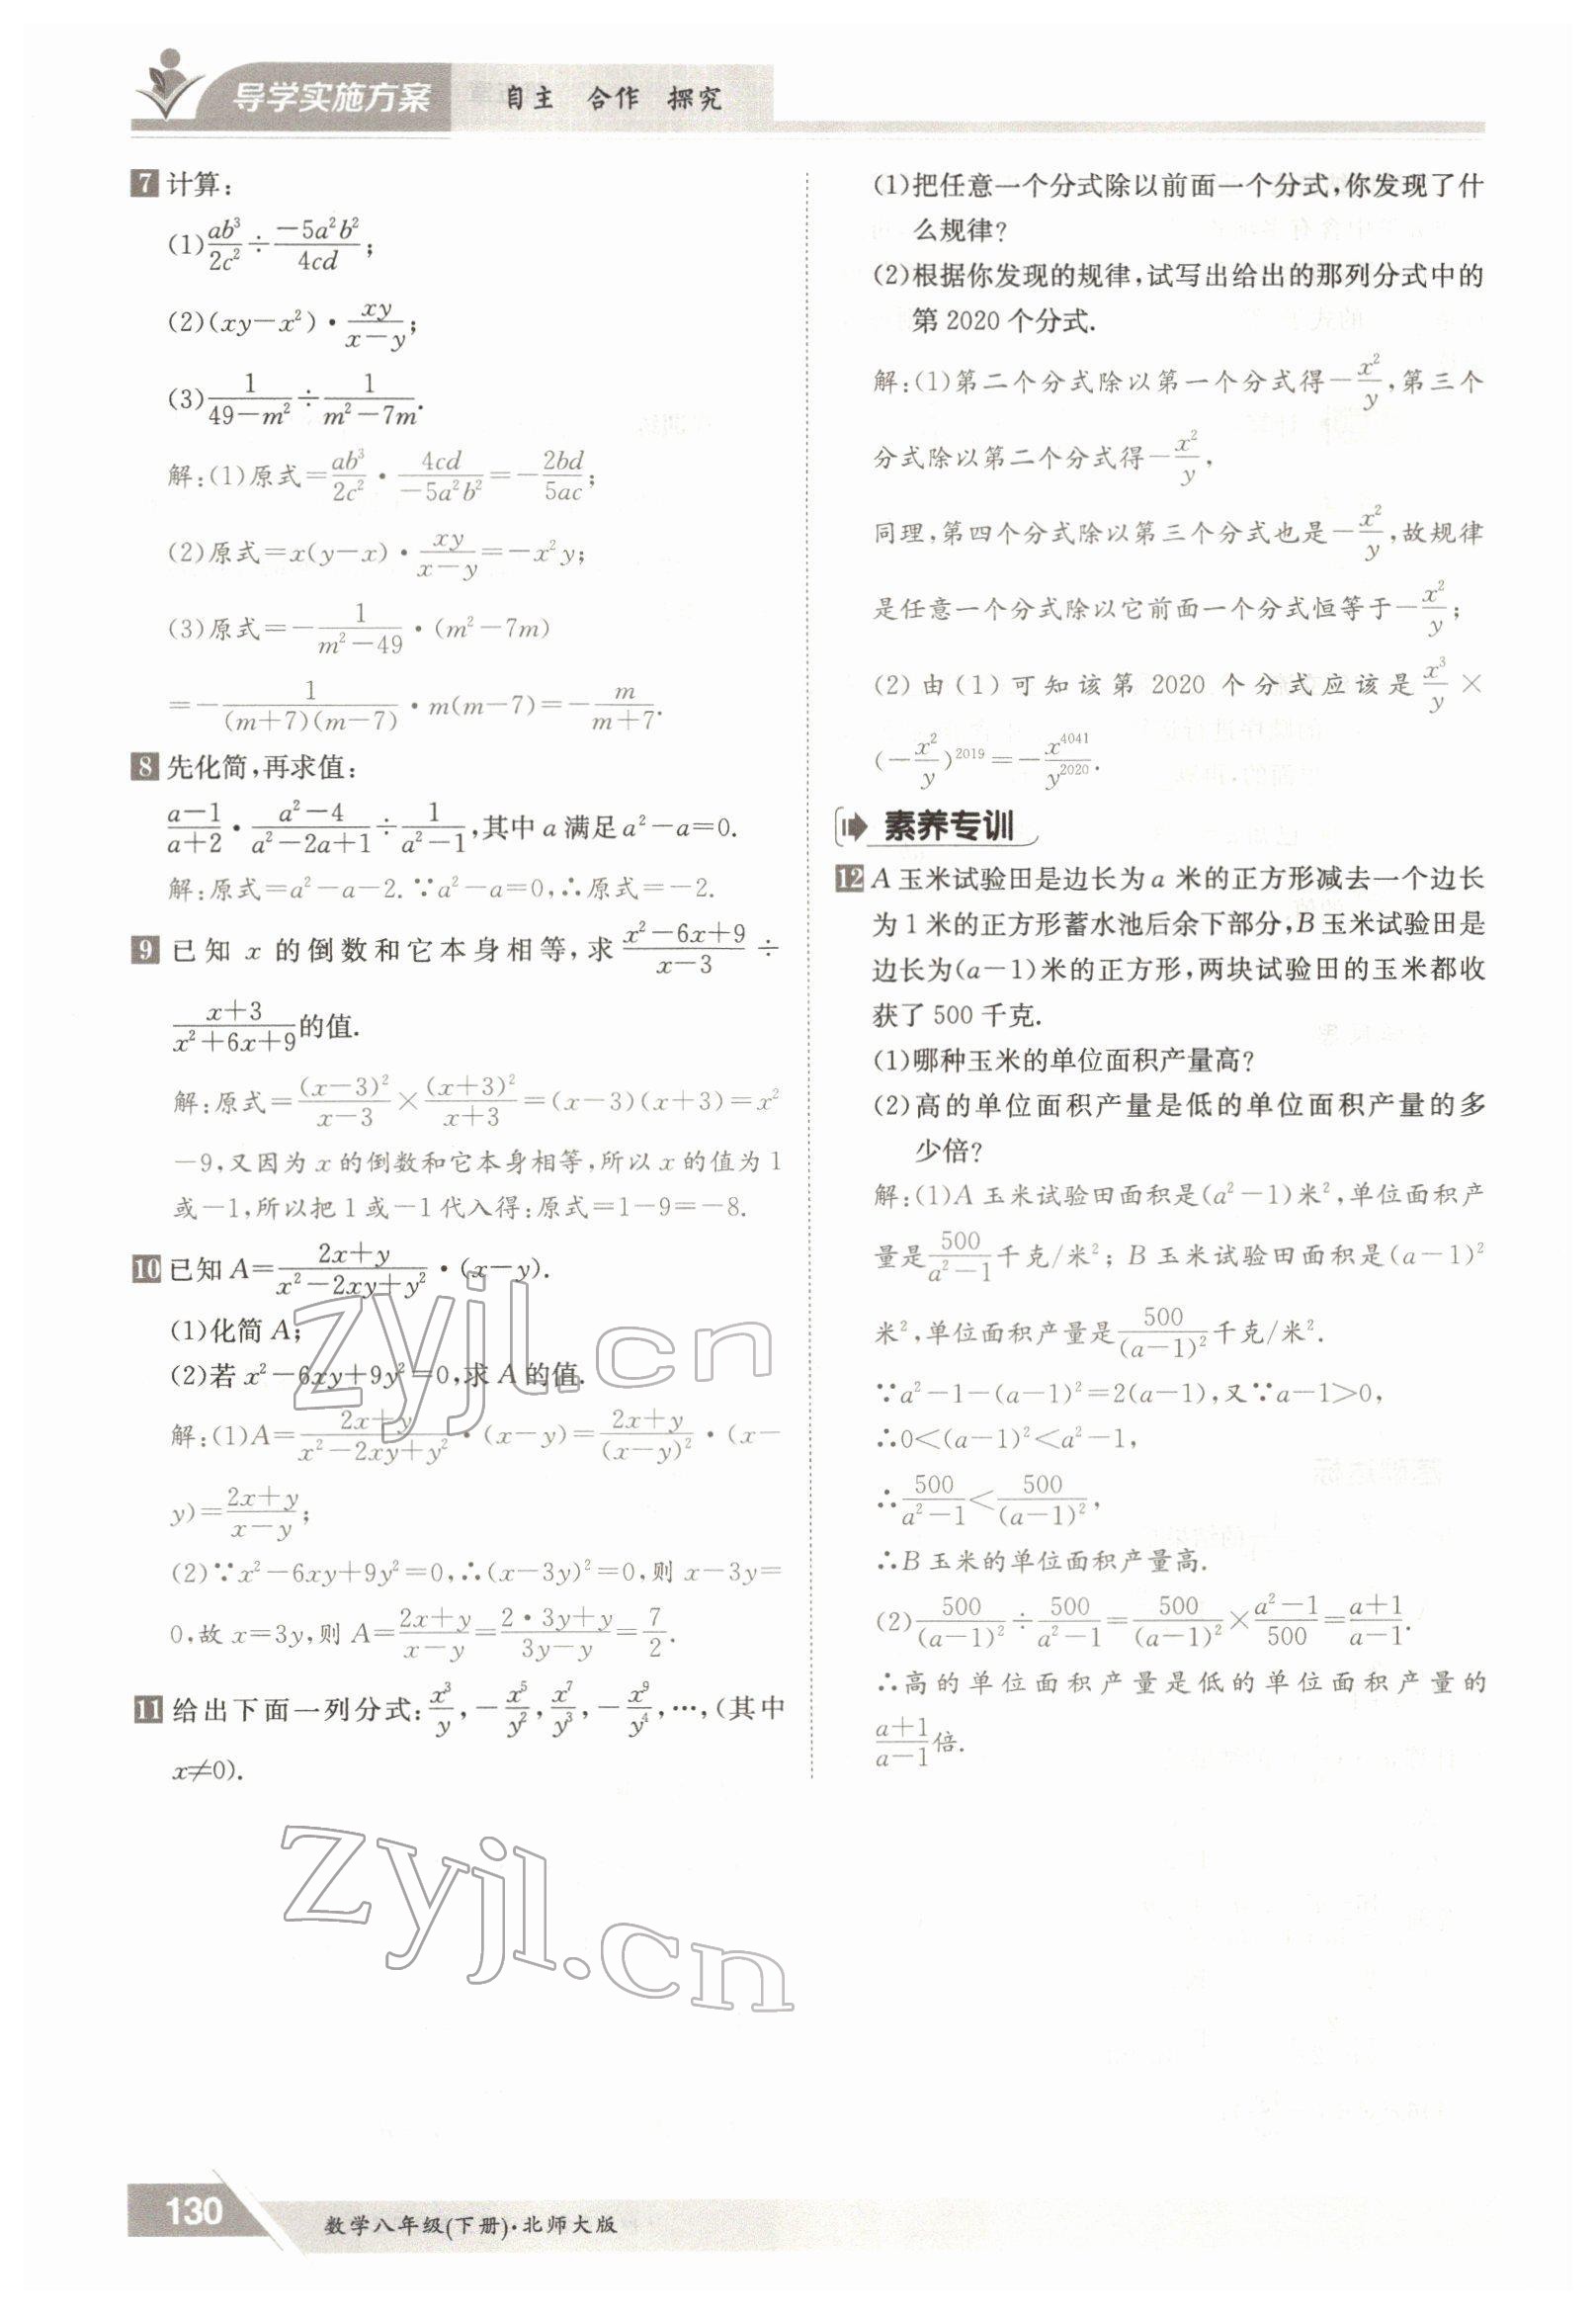 导学实施方案 自主 合作 探究
7 计算:
(1)ab³/2c² ÷ −5a²b²/4cd;
(2)(xy−x²)·xy/(x−y);
(3)1/(49−m²) ÷ 1/(m²−7m).
解:(1)原式=ab³/2c²·4cd/(−5a²b²)=−2bd/5ac;
(2)原式=x(y−x)·xy/(x−y)=−x²y;
(3)原式=−1/(m²−49)·(m²−7m)
=−1/((m+7)(m−7))·m(m−7)=−m/(m+7).
8 先化简,再求值:
(a−1)/(a+2)·(a²−4)/(a²−2a+1)÷1/(a²−1),其中a满足a²−a=0.
解:原式=a²−a−2.∵a²−a=0,∴原式=−2.
9 已知x的倒数和它本身相等,求(x²−6x+9)/(x−3)÷
(x+3)/(x²+6x+9)的值.
解:原式=(x−3)²/(x−3)×(x+3)²/(x+3)=(x−3)(x+3)=x²
−9,又因为x的倒数和它本身相等,所以x的值为1
或−1,所以把1或−1代入得:原式=1−9=−8.
10 已知A=(2x+y)/(x²−2xy+y²)·(x−y).
(1)化简A;
(2)若x²−6xy+9y²=0,求A的值.
解:(1)A=(2x+y)/(x²−2xy+y²)·(x−y)=(2x+y)/(x−y)²·(x−
y)=(2x+y)/(x−y);
(2)∵x²−6xy+9y²=0,∴(x−3y)²=0,则x−3y=
0,故x=3y,则A=(2x+y)/(x−y)=(2·3y+y)/(3y−y)=7/2.
11 给出下面一列分式:x³/y,−x⁵/y²,x⁷/y³,−x⁹/y⁴,…,(其中
x≠0).
(1)把任意一个分式除以前面一个分式,你发现了什
么规律?
(2)根据你发现的规律,试写出给出的那列分式中的
第2020个分式.
解:(1)第二个分式除以第一个分式得−x²/y,第三个
分式除以第二个分式得−x²/y,
同理,第四个分式除以第三个分式也是−x²/y,故规律
是任意一个分式除以它前面一个分式恒等于−x²/y;
(2)由(1)可知该第2020个分式应该是x³/y×
(−x²/y)²⁰¹⁹=−x⁴⁰⁴¹/y²⁰²⁰.
素养专训
12 A玉米试验田是边长为a米的正方形减去一个边长
为1米的正方形蓄水池后余下部分,B玉米试验田是
边长为(a−1)米的正方形,两块试验田的玉米都收
获了500千克.
(1)哪种玉米的单位面积产量高?
(2)高的单位面积产量是低的单位面积产量的多
少倍?
解:(1)A玉米试验田面积是(a²−1)米²,单位面积产
量是500/(a²−1)千克/米²;B玉米试验田面积是(a−1)²
米²,单位面积产量是500/(a−1)²千克/米².
∵a²−1−(a−1)²=2(a−1),又∵a−1>0,
∴0<(a−1)²<a²−1,
∴500/(a²−1)<500/(a−1)²,
∴B玉米的单位面积产量高.
(2)500/(a−1)²÷500/(a²−1)=500/(a−1)²×(a²−1)/500=(a+1)/(a−1).
∴高的单位面积产量是低的单位面积产量的
(a+1)/(a−1)倍.
zyjl.cn
zyjl.cn
130 数学八年级(下册)·北师大版